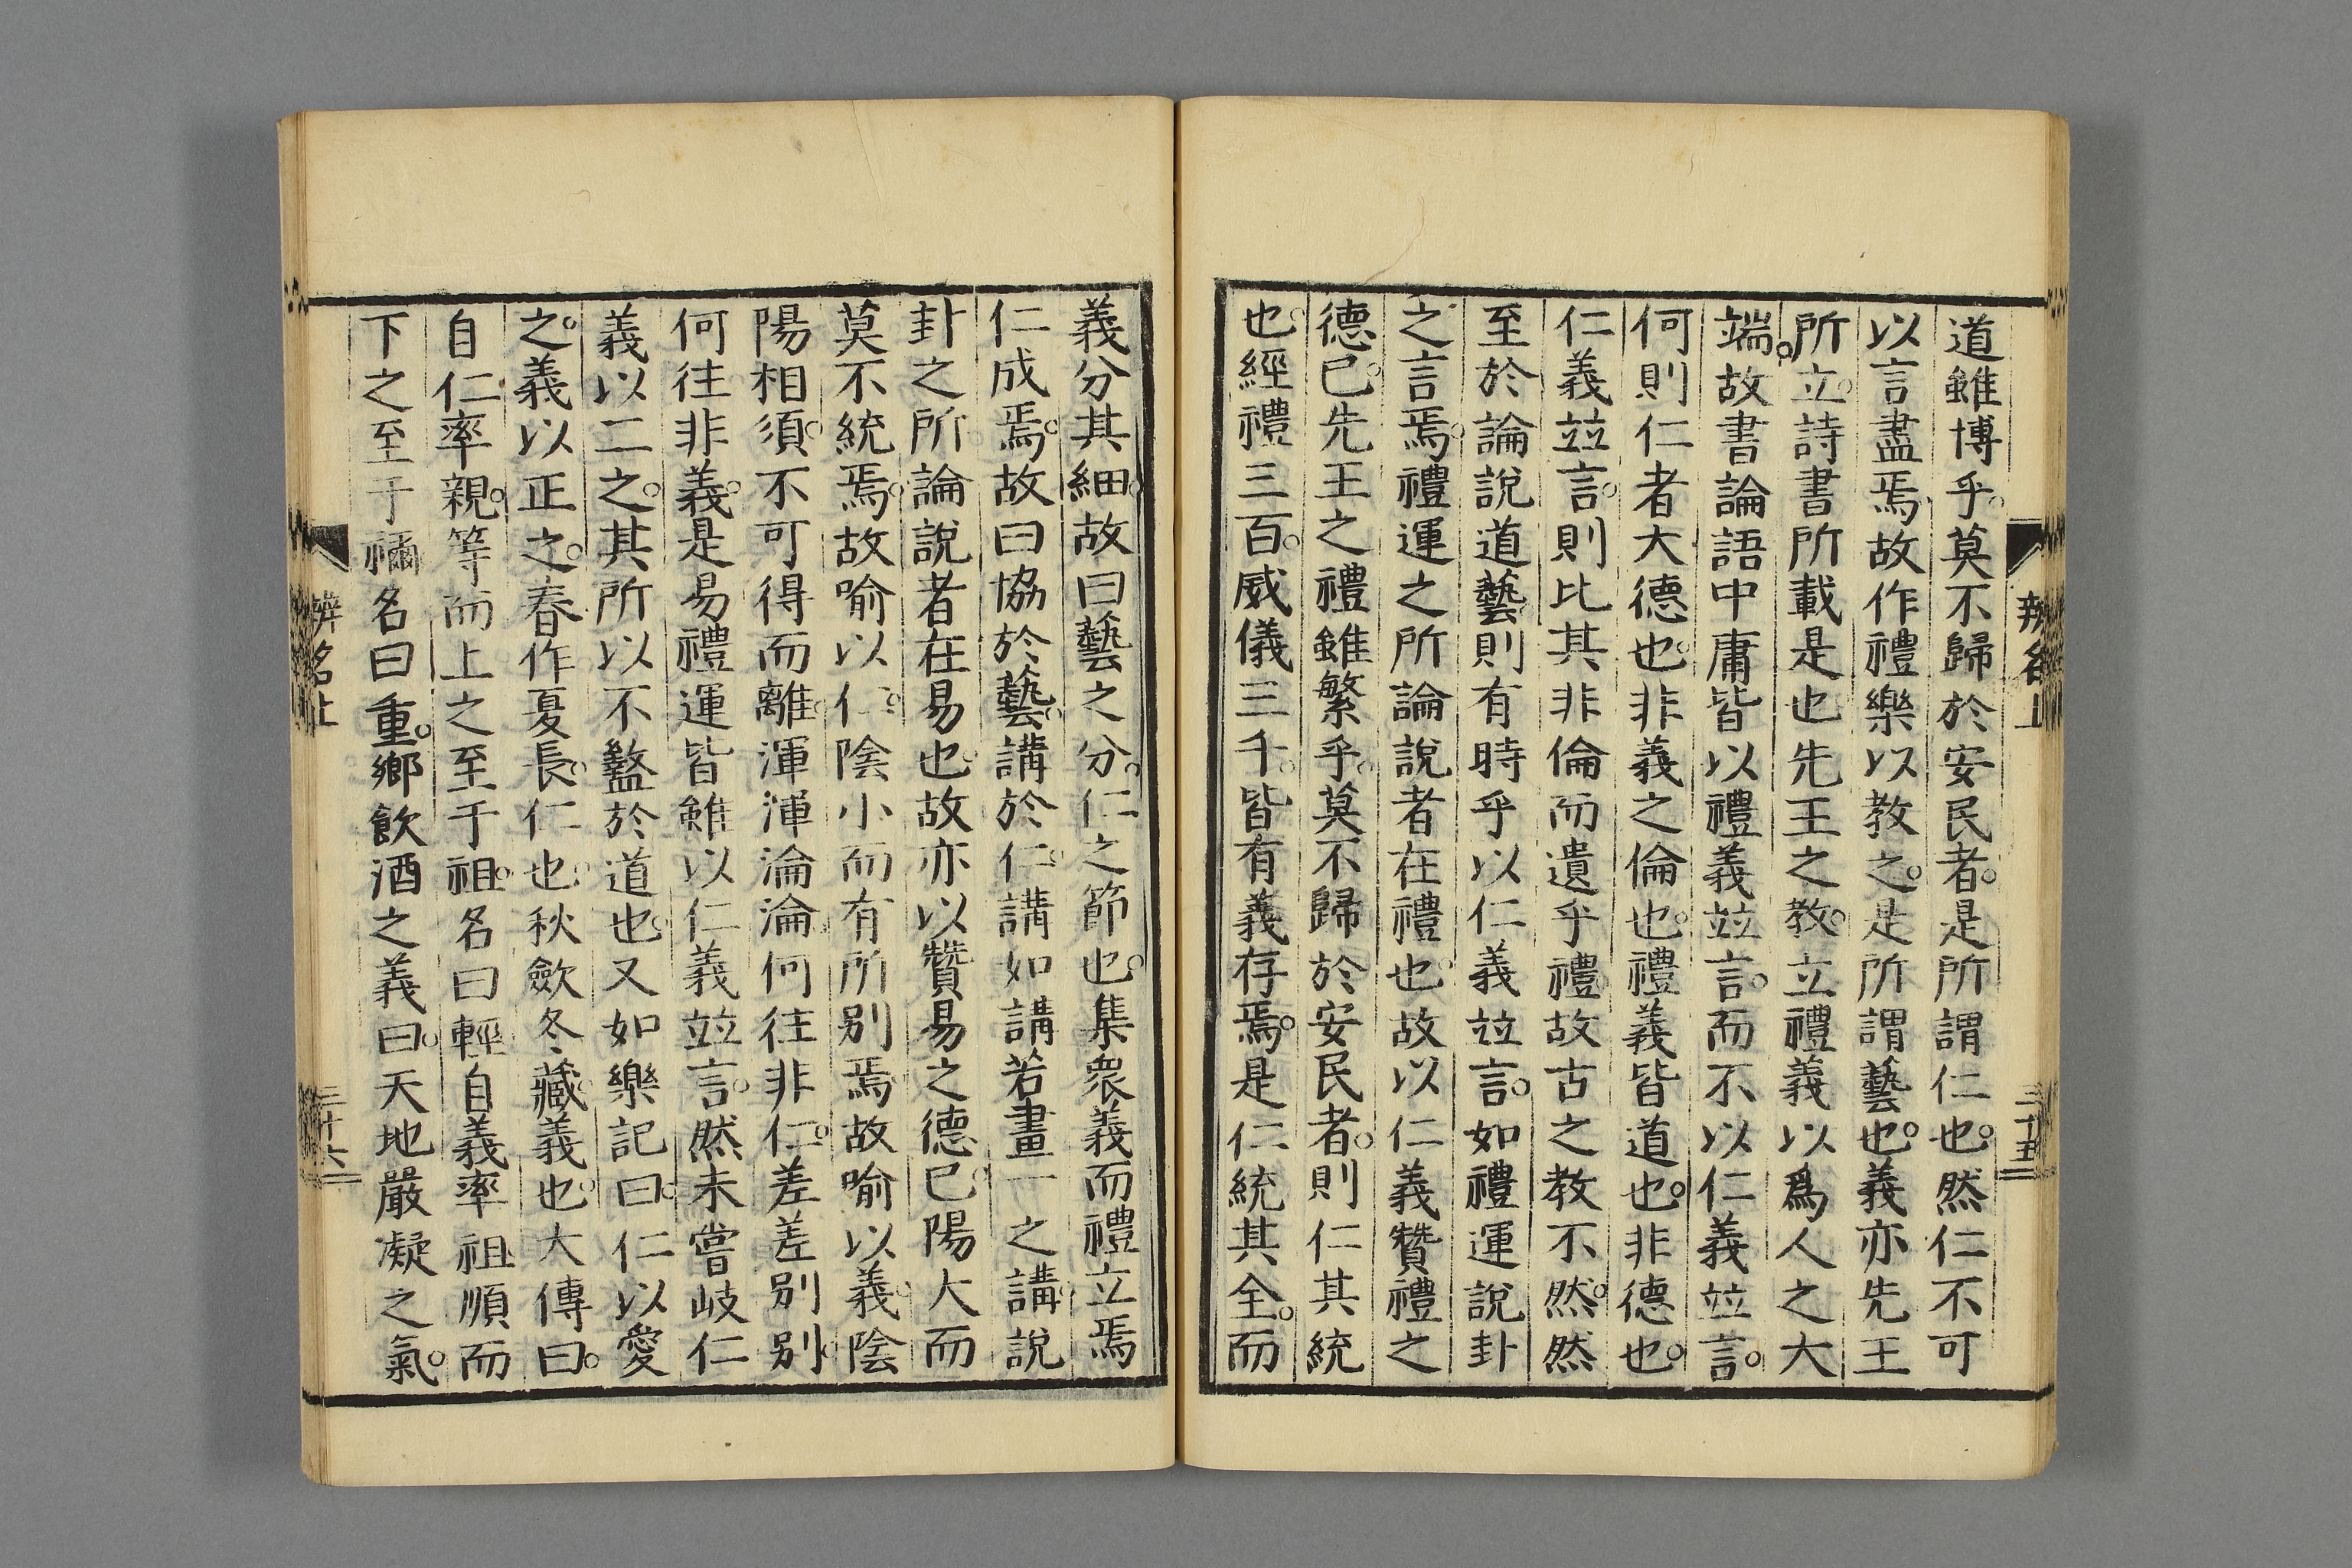 辨名上
三十五
道雖博乎。莫不歸於安民者。是所謂仁也。然仁不可
以言盡焉故作禮樂以教之。是所謂藝也。義亦先王
所立。詩書所載是也先王之教。立禮義以爲人之大
端。故書論語中庸皆以禮義竝言。而不以仁義竝言。
何則仁者大德也。非義之倫也。禮義皆道也。非德也。
仁義竝言。則比其非倫而遺乎禮。故古之教不然。然
至於論說道藝。則有時乎以仁義竝言。如禮運說卦
之言焉。禮運之所論說者在禮也。故以仁義贊禮之
德已。先王之禮雖繁乎。莫不歸於安民者。則仁其統
也。經禮三百。威儀三千。皆有義存焉。是仁統其全。而
義分其細。故曰藝之分。仁之節也。集衆義而禮立焉
仁成焉。故曰協於藝。講於仁。講如講若畫一之講。說
卦之所論說者在易也。故亦以贊易之德已。陽大而
莫不統焉。故喻以仁。陰小而有所別焉。故喻以義。陰
陽相須。不可得而離。渾渾淪淪何往非仁。差差別別。
何往非義。是易禮運皆雖以仁義竝言。然未嘗岐仁
義以二之。其所以不盭於道也。又如樂記曰。仁以愛
之。義以正之。春作夏長。仁也。秋斂冬藏。義也。大傳曰。
自仁率親。等而上之至于祖。名曰輕自義率祖順而
下之至于禰名曰重。鄉飲酒之義曰。天地嚴凝之氣。
辨名上
三十六